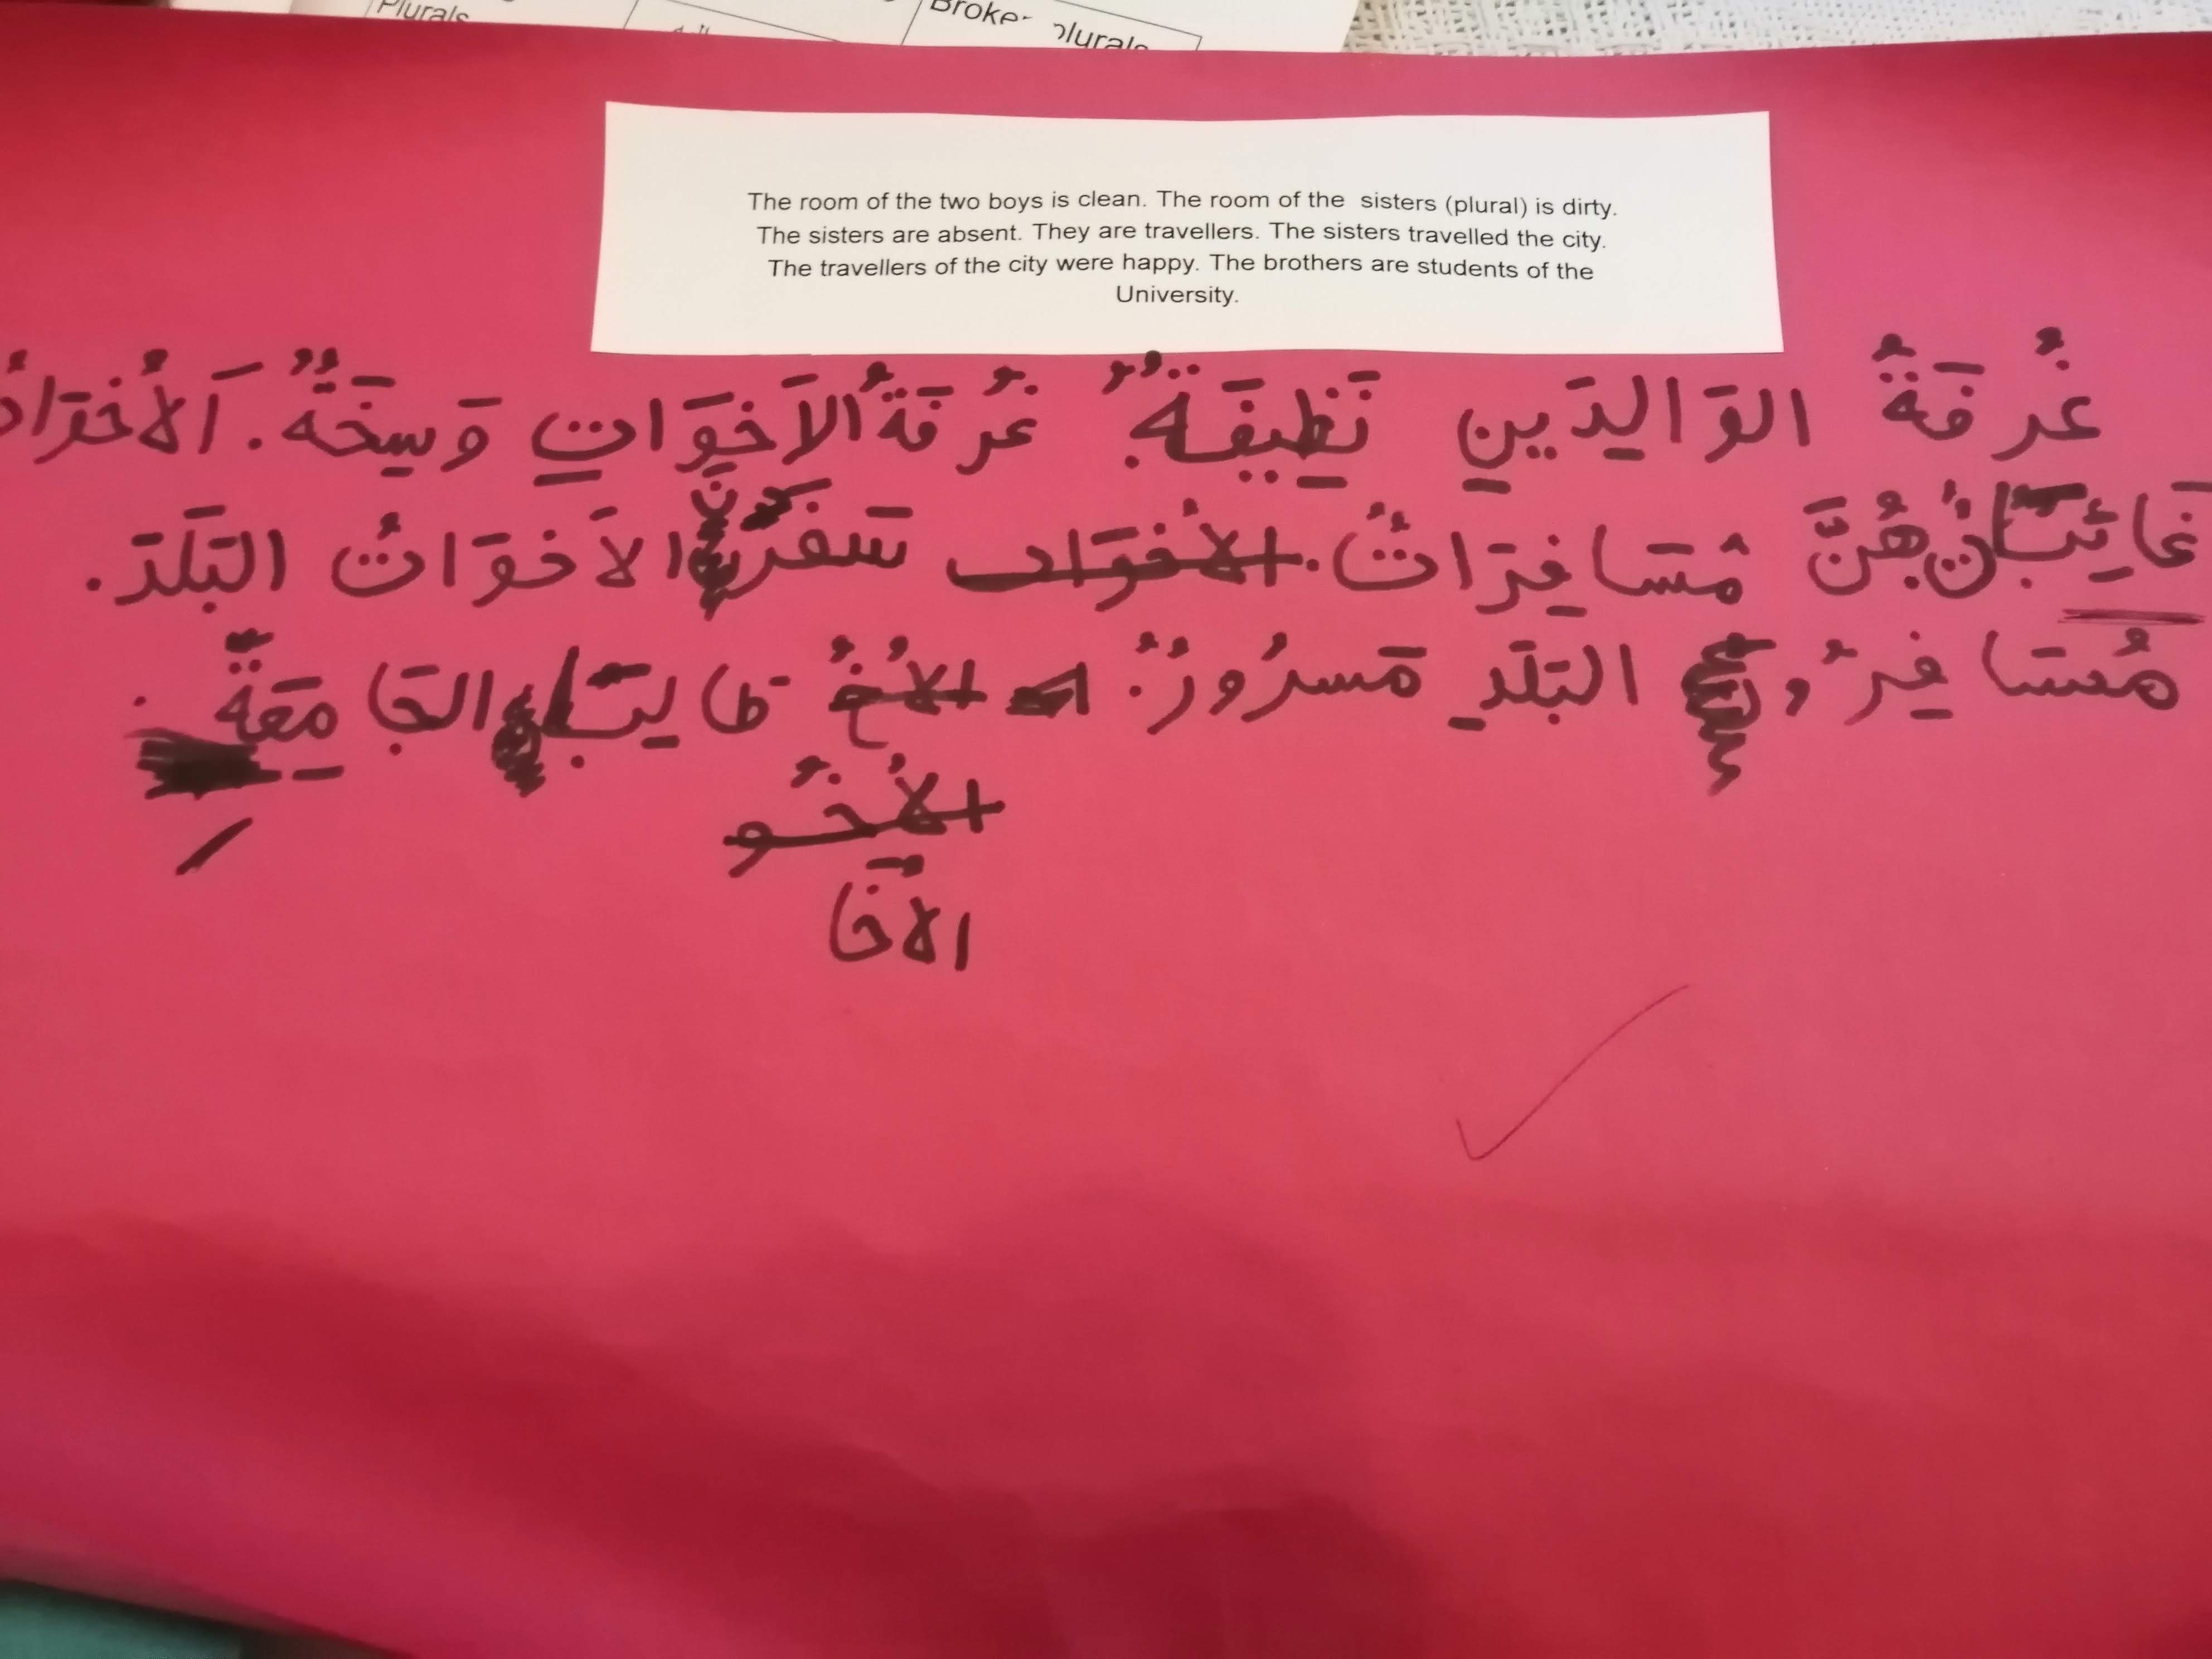 Plurals
Broke- plurals
The room of the two boys is clean. The room of the sisters (plural) is dirty.
The sisters are absent. They are travellers. The sisters travelled the city.
The travellers of the city were happy. The brothers are students of the
University.
غُرفَةُ الوَالِدَينِ نَظِيفَةٌ. غُرفَةُ الاَخِوَاتِ وَسِخَةٌ. اَلاُخوَاتُ
غَائِبَاتُ هُنَّ مُسَافِرَاتُ. الاُخوَات سَفَرنَ الاَخوَاتُ البَلَدَ.
مُسَافِرُو البَلَدِ مَسرُورُ. الاُخُ طَالِبَا الجَامِعَةِ.
الاُخُو
الاخَا